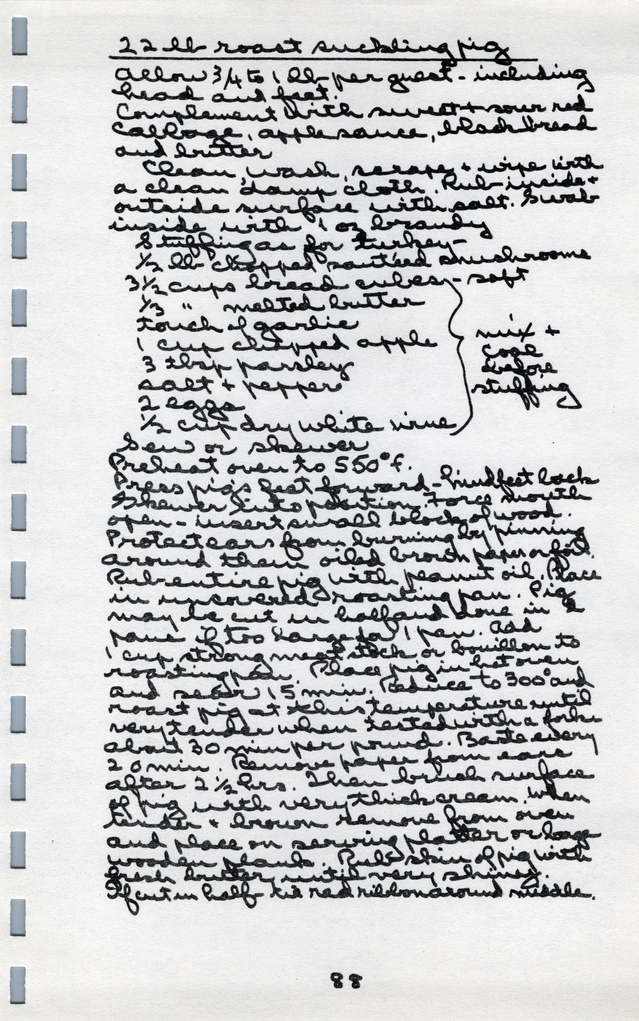 22 lb roast suckling pig
Allow 3/4 to 1 lb per guest - including
head and feet.
Complement with sweet + sour red
cabbage, applesauce, black bread
and butter
Clean, wash, scrape + wipe with
a clean damp cloth. Rub inside +
outside surface with salt. Swab
inside with 1 oz brandy
Stuffing as for turkey -
1/2 lb chopped sautéed mushrooms
3 1/2 cups bread cubes - soft
1/3 " melted butter
touch of garlic
1 cup chopped apple
3 tbsp parsley
salt + pepper
2 eggs
1/2 cup dry white wine
mix +
cool
before
stuffing
Sew or skewer
Preheat oven to 550°f.
Press pigs feet forward - hindfeet back
Skewer into position. Force mouth
open - insert small block of wood.
Protect ears from burning by pinning
around them oiled brown paper or foil.
Rub entire pig with peanut oil. Place
in uncovered roasting pan. Pig
may be cut in half and done in 2
pans if too large for 1 pan. Add
1 cup strong meat stock or bouillon to
roasting pan. Place pig in hot oven
and sear 15 min. Reduce to 300° and
roast pig at this temperature until
very tender when tested with a fork -
about 30 min per pound. Baste every
20 min. Remove paper from ears
after 2 1/2 hrs. Then brush surface
of pig with very thick cream. When
tender + brown remove from oven
and place on serving platter or large
wooden plank. Rub skin of pig with
fresh butter until very shiny.
If cut in half - tie red ribbon around middle.
88